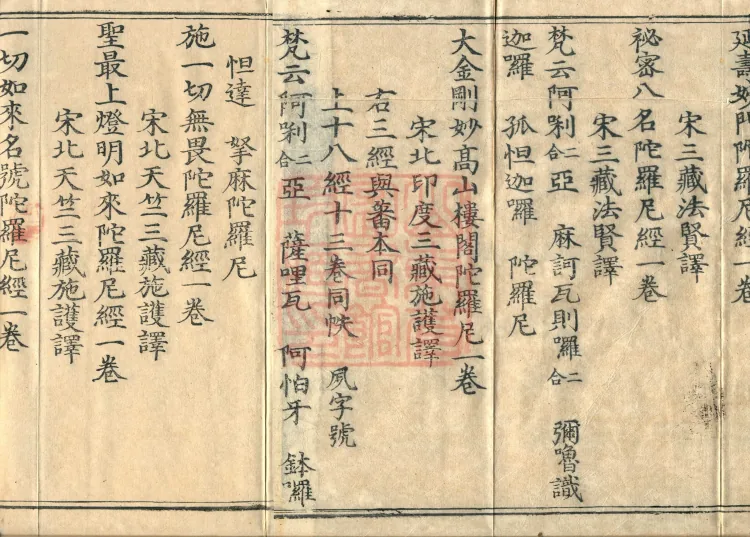 延壽妙門陀羅尼經一卷
宋三藏法賢譯
祕密八名陀羅尼經一卷
宋三藏法賢譯
梵云阿剁二合亞 麻訶瓦則囉二合 彌嚕識
迦囉 孤怛迦囉 陀羅尼
大金剛妙高山樓閣陀羅尼一卷
宋北印度三藏施護譯
右三經與蕃本同
上十八經十三卷同帙 夙字號
梵云阿剁二合亞 薩哩瓦 阿怕牙 鉢囉
怛達 拏麻陀羅尼
施一切無畏陀羅尼經一卷
宋北天竺三藏施護譯
聖最上燈明如來陀羅尼經一卷
宋北天竺三藏施護譯
一切如來名號陀羅尼經一卷